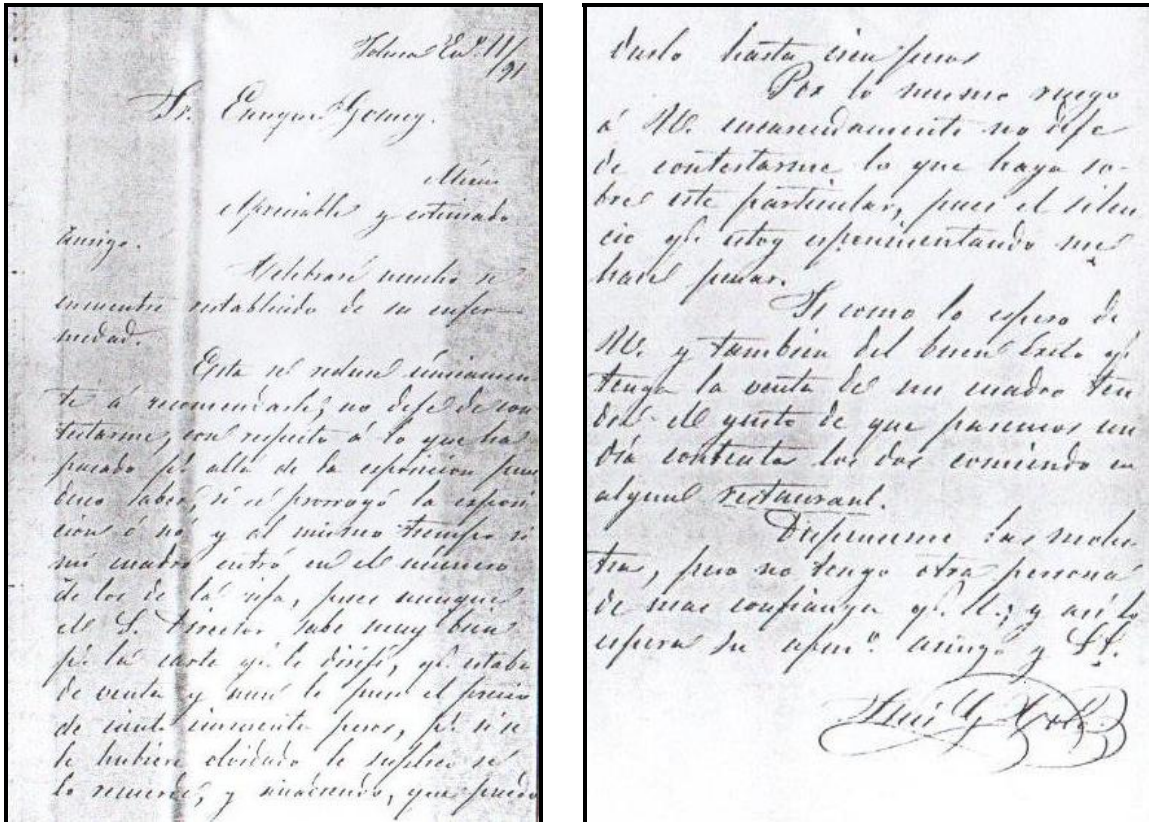 Toluca En.º 11/91
Sr. Enrique Gomez.
Apreciable y estimado
amigo.
Celebraré mucho se
encuentre restablecido de su enfer-
medad.
Esta se reduce únicamen
te á recomendarle, no deje de con
testarme, con respecto á lo que ha
pasado pr. allá de la esposicion pues
deceo saber, si se prorrogó la esposi
cion ó nó y al mismo tiempo si
mi cuadro entró en el número
de los de la rifa, pues aunque
el S. Director sabe muy bien
pr. la carta qe. le dirijí, qe. estaba
de venta y aun le puse el precio
de ciento cincuenta pesos, pr. si se
le hubiere olvidado le suplico se
lo recuerde, y añadiendo, que puede
darlo hasta cien pesos
Por lo mismo ruego
á Ud. encarecidamente no deje
de contestarme lo que haya so-
bre este particular, pues el silen
cio qe. estoy esperimentando me
hace pensar.
Si como lo espero de
Ud. y tambien del buen éxito qe.
tenga la venta de mi cuadro ten
dré el gusto de que pasemos un
día contentos los dos comiendo en
algun restaurant.
Dispenseme las moles
tias, pero no tengo otra persona
de mas confianza qe. U.; y así lo
espera su apreº. amigo y S.S.
Luis G.